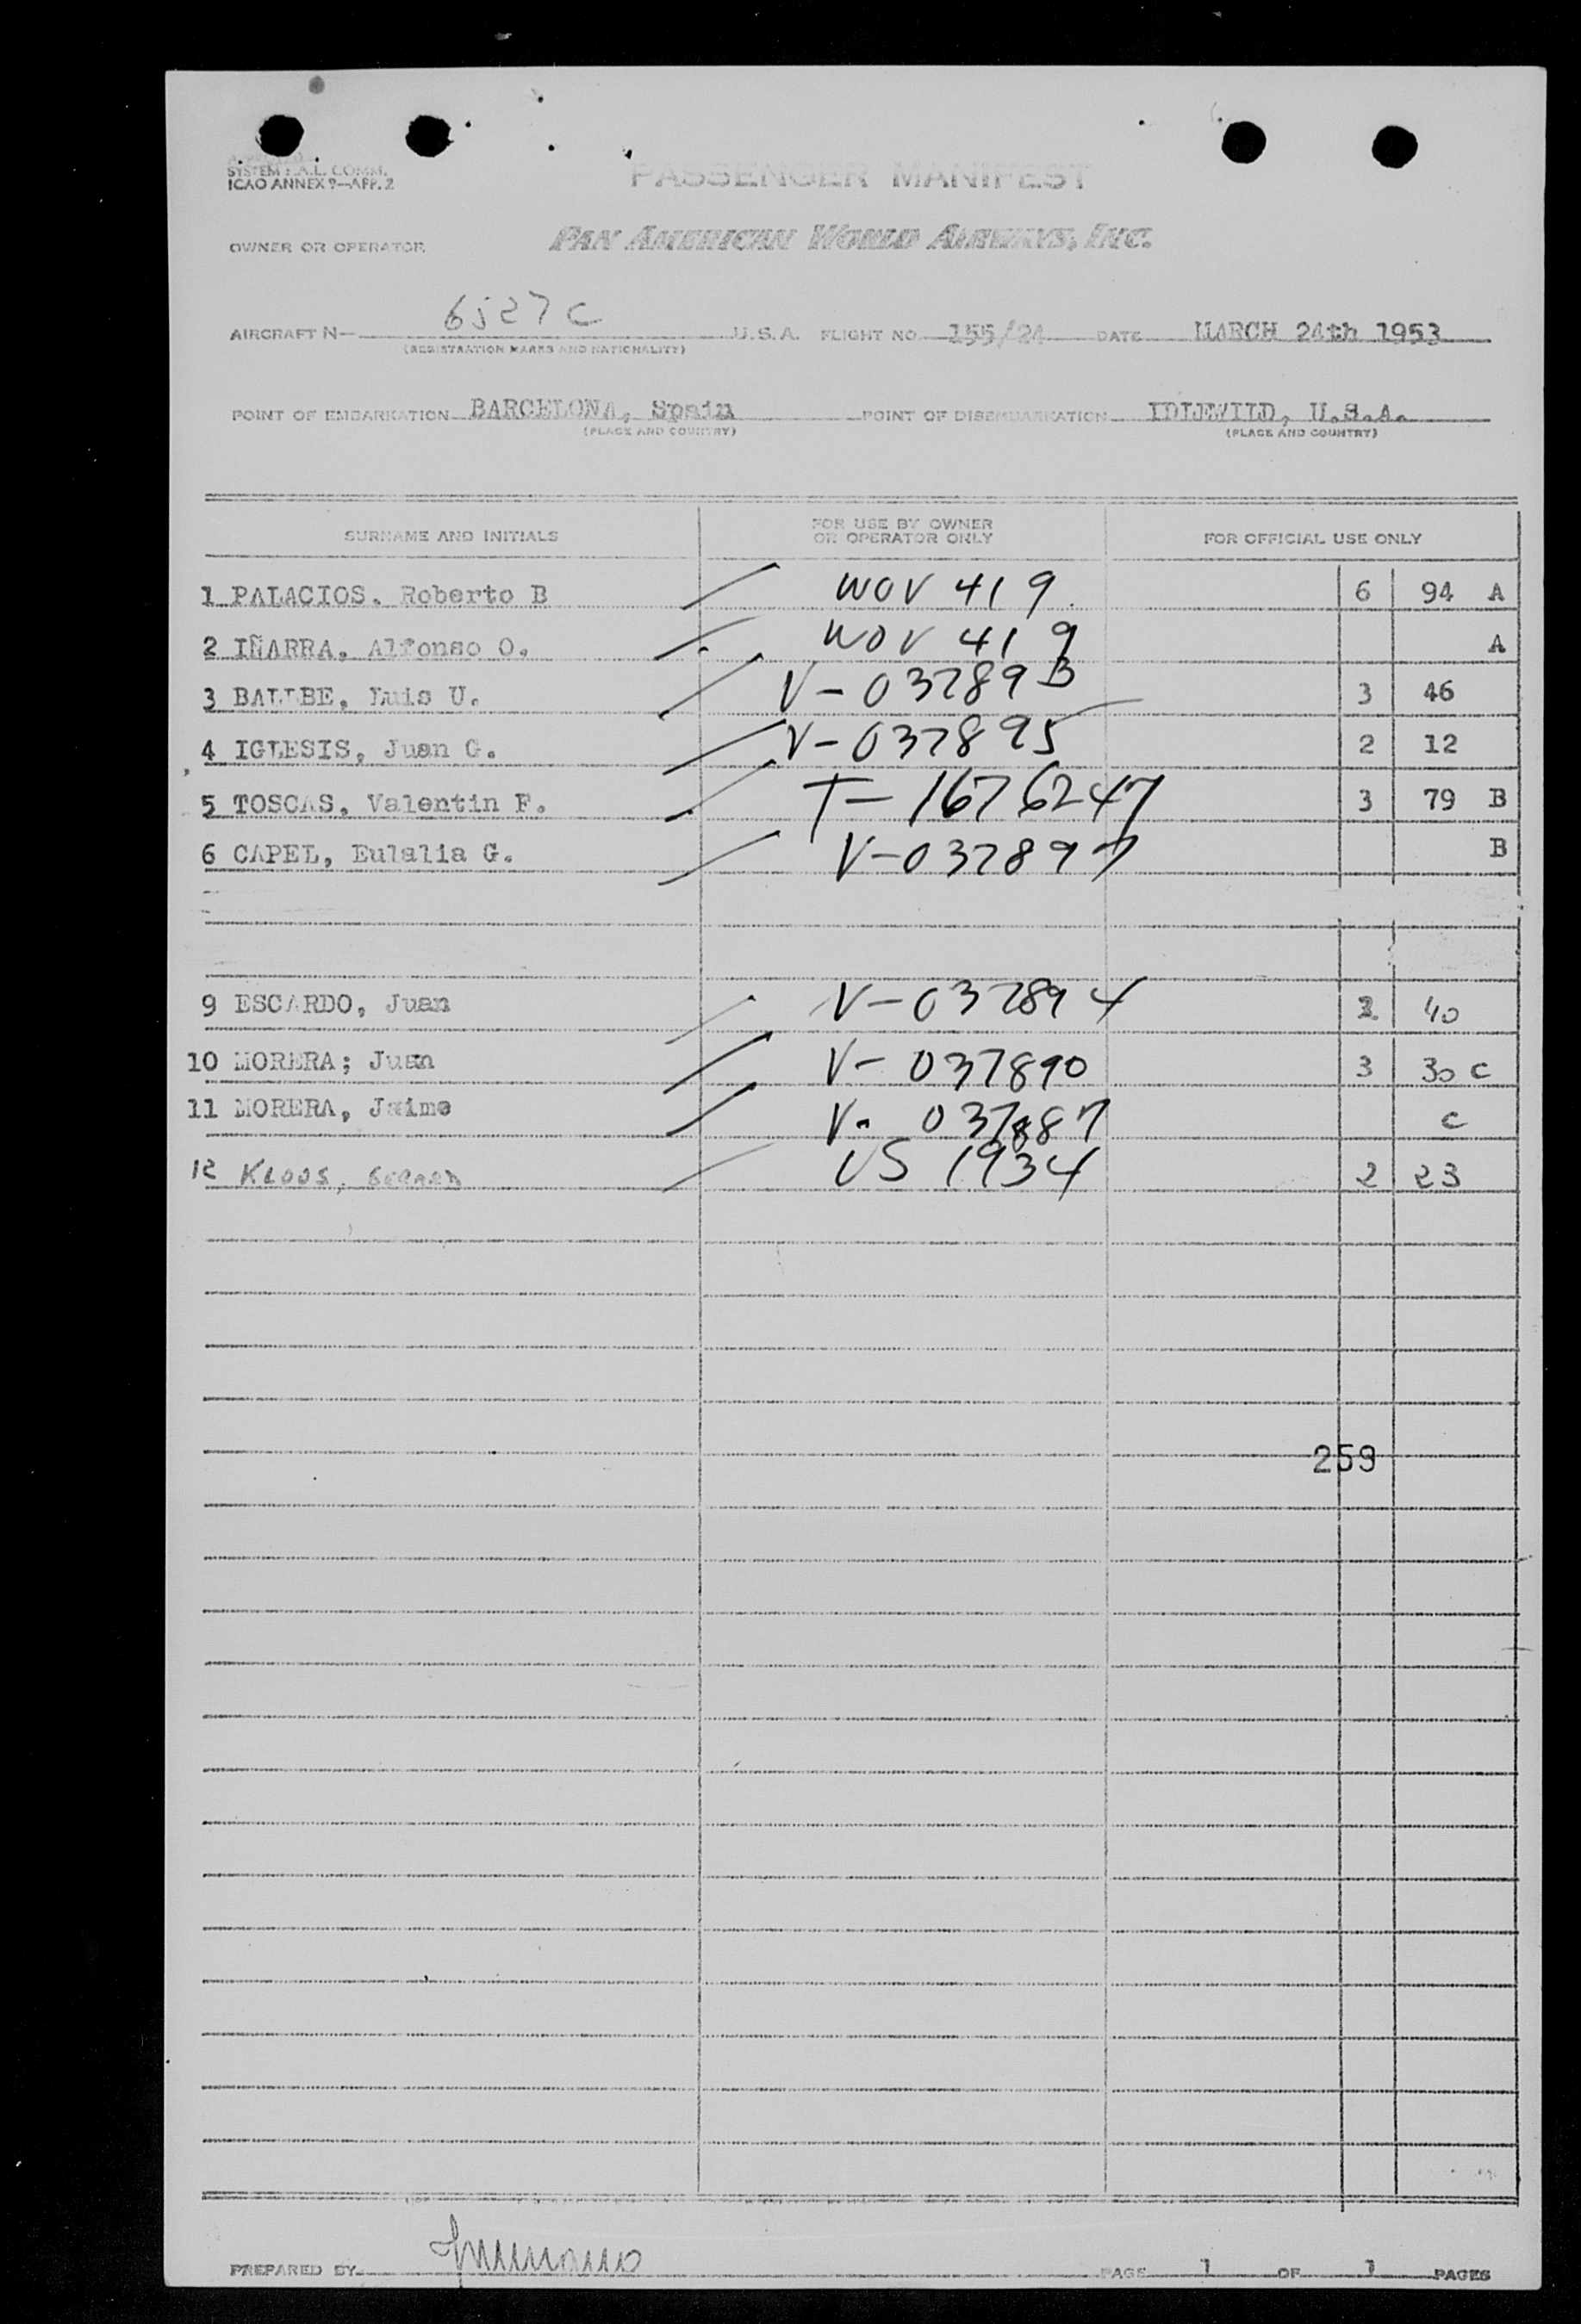 SYSTEM F.A.L. COMM.
ICAO ANNEX 9—APP. 2
PASSENGER MANIFEST
OWNER OR OPERATOR PAN AMERICAN WORLD AIRWAYS, INC.
AIRCRAFT N— 6527C U.S.A. FLIGHT NO. 155/24 DATE MARCH 24th 1953
(REGISTRATION MARKS AND NATIONALITY)
POINT OF EMBARKATION BARCELONA, Spain POINT OF DISEMBARKATION IDLEWILD, U.S.A.
(PLACE AND COUNTRY) (PLACE AND COUNTRY)
SURNAME AND INITIALS FOR USE BY OWNER OR OPERATOR ONLY FOR OFFICIAL USE ONLY
1 PALACIOS. Roberto B WOV 419 6 94 A
2 IÑARRA, Alfonso O. WOV 419 A
3 BALLBE, Luis U. V-037893 3 46
4 IGLESIS, Juan G. V-037895 2 12
5 TOSCAS, Valentin F. T-1676247 3 79 B
6 CAPEL, Eulalia G. V-037897 B
9 ESCARDO, Juan V-037894 2 40
10 MORERA; Juan V-037890 3 30 C
11 MORERA, Jaime V- 037887 C
12 KLOOS, GERARD US 1934 2 23
259
PREPARED BY PAGE 1 OF 1 PAGES